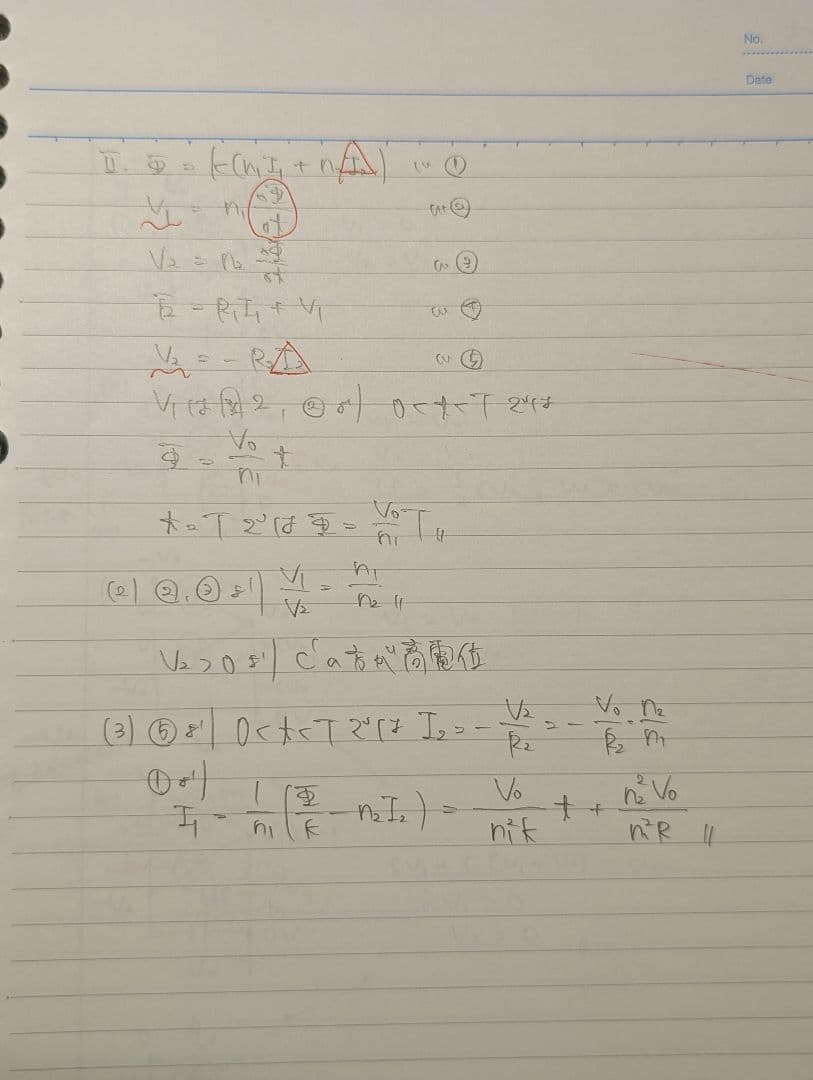 No.
Date
II. Φ = k(n₁I₁ + n₂I₂) … ①
V₁ = n₁ ΔΦ/Δt … ②
V₂ = n₂ ΔΦ/Δt … ③
E = R₁I₁ + V₁ … ④
V₂ = - R₂I₂ … ⑤
V₁は で, ②より 0<t<Tでは
Φ = V₀/n₁ t
t=Tでは Φ = V₀/n₁ T 〃
(2) ②, ③より V₁/V₂ = n₁/n₂ 〃
V₂>0より C'の方が高電位
(3) ⑤より 0<t<Tでは I₂ = - V₂/R₂ = - V₀/R₂ · n₂/n₁
①より
I₁ = 1/n₁ (Φ/k - n₂I₂) = V₀/n₁²k t + n₂²V₀/n₁²R 〃